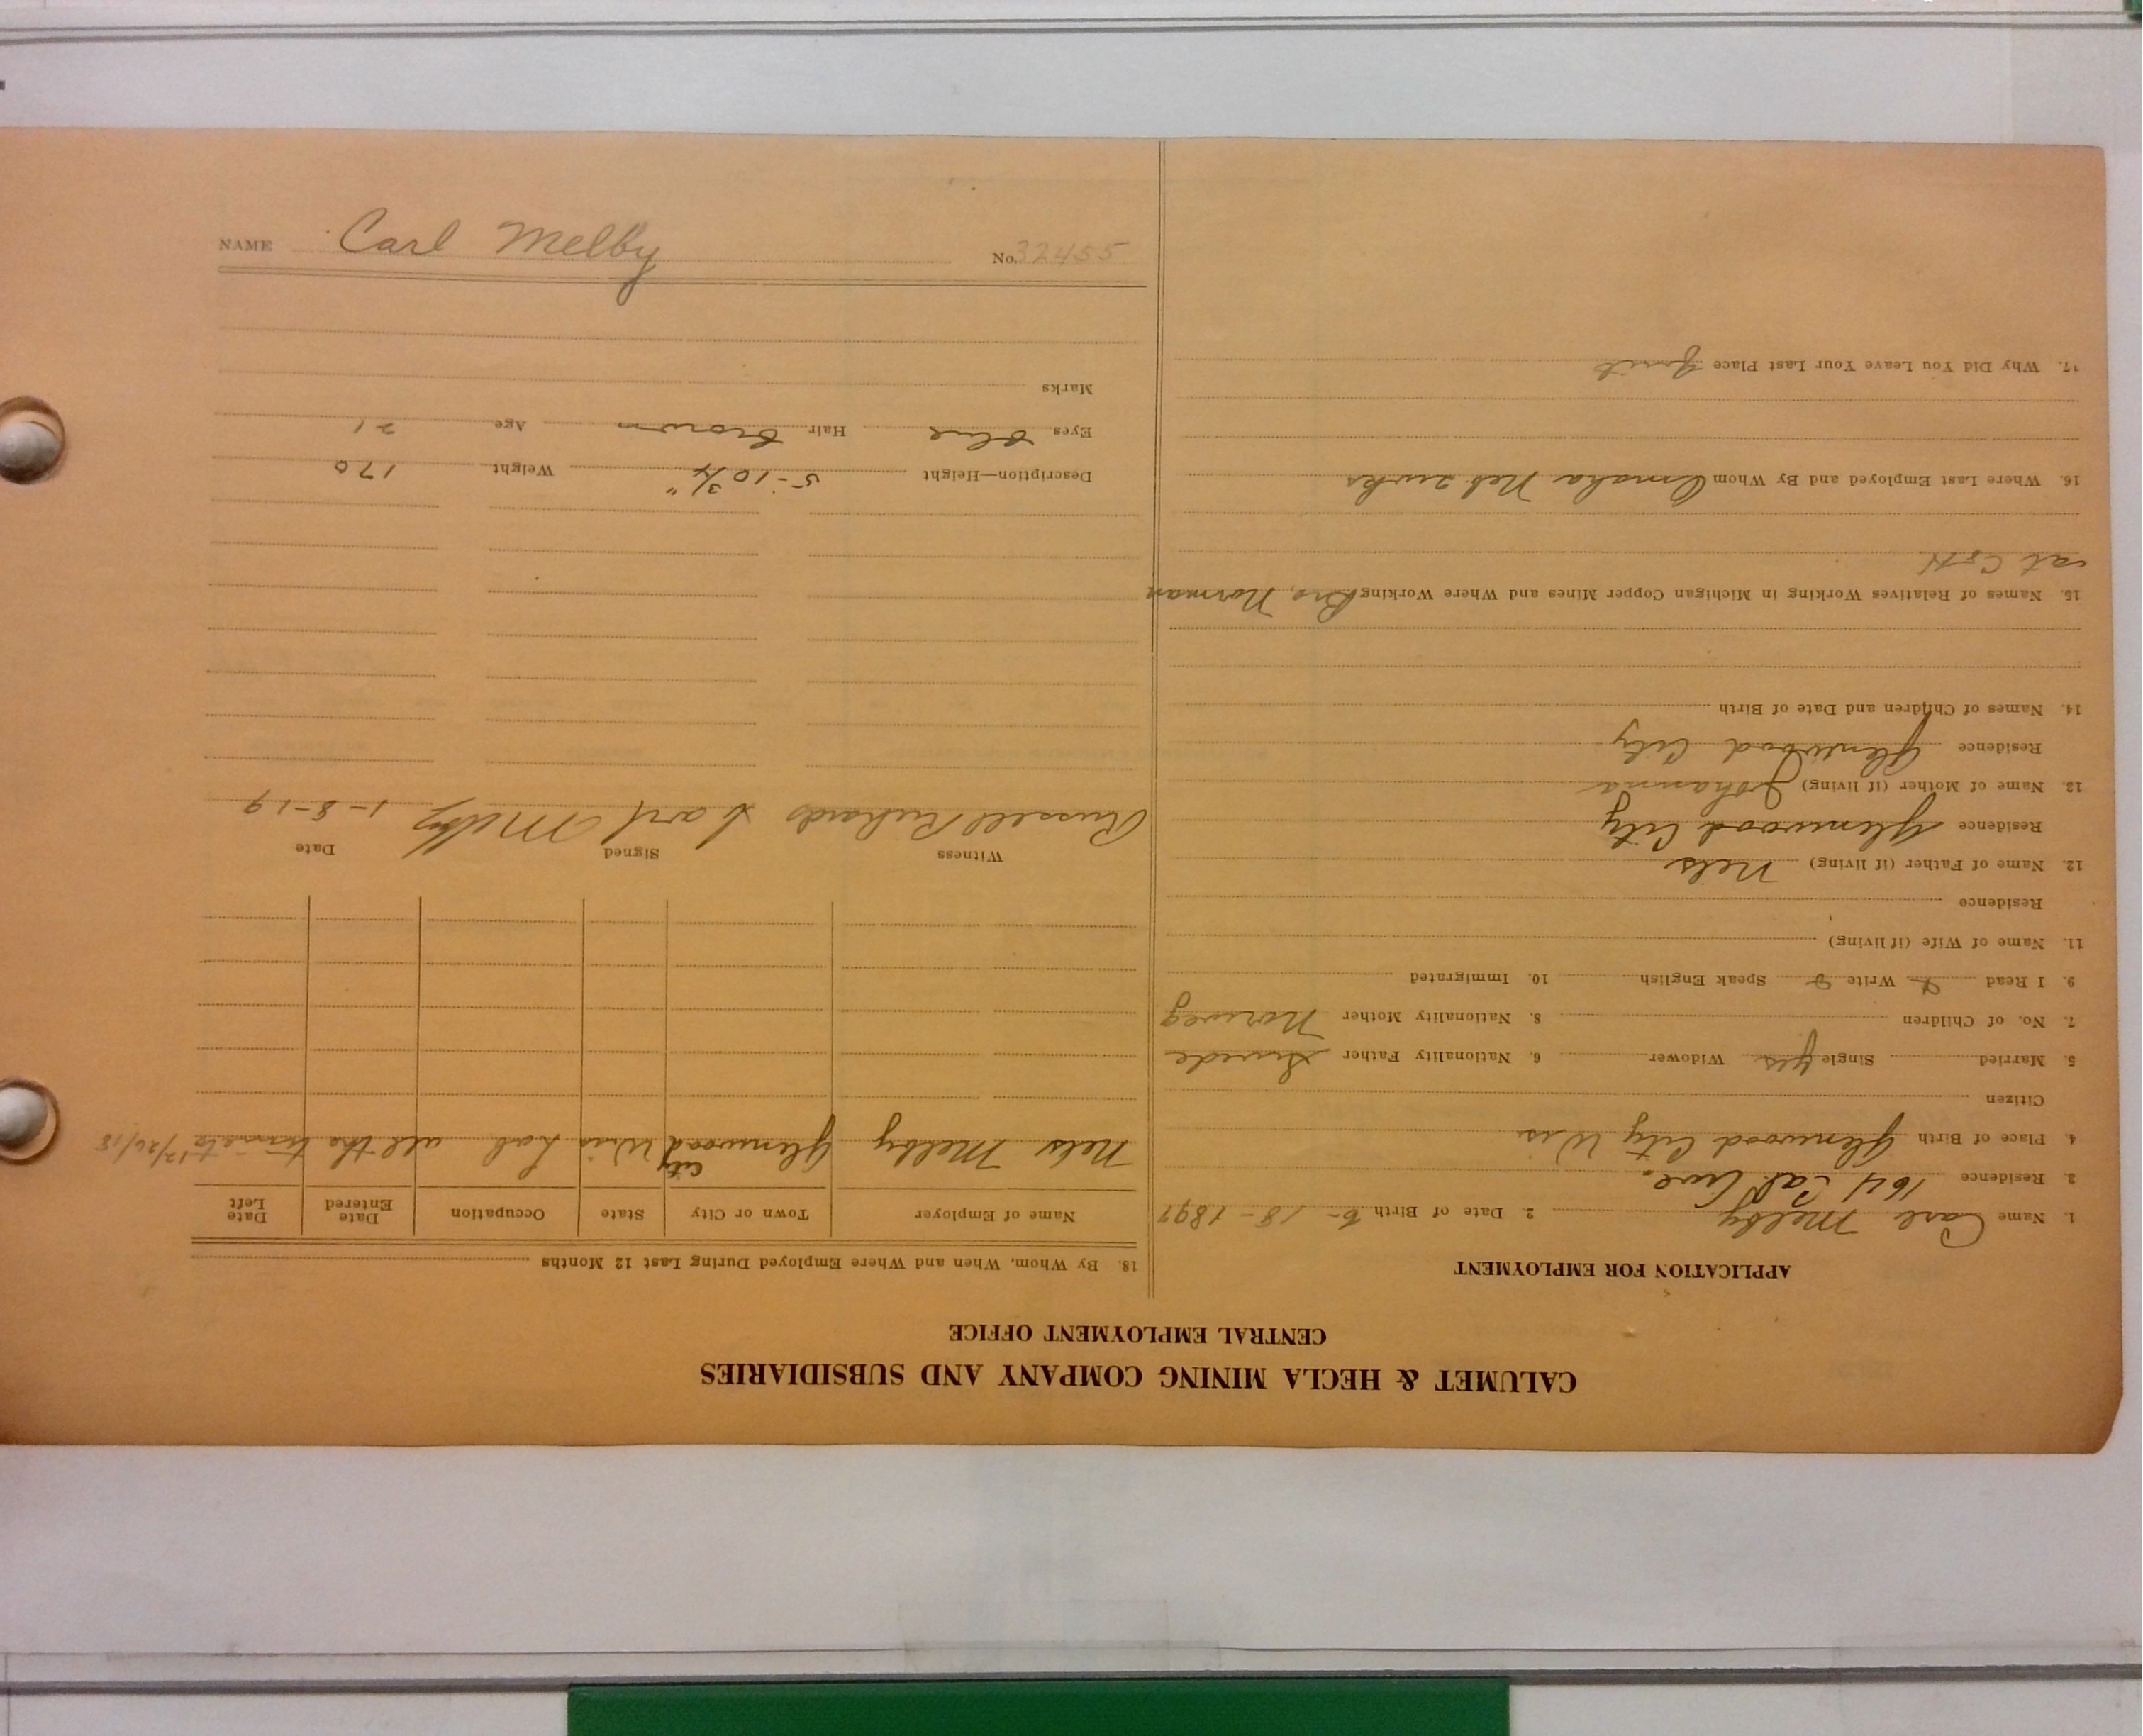 CALUMET & HECLA MINING COMPANY AND SUBSIDIARIES
CENTRAL EMPLOYMENT OFFICE
APPLICATION FOR EMPLOYMENT
1. Name Carl Melby 2. Date of Birth 6-18-1897
3. Residence 164 Cal Ave.
4. Place of Birth Glenwood City Wis
Citizen
5. Married Single yes Widower 6. Nationality Father Swede
7. No. of Children 8. Nationality Mother Norweg
9. I Read Write Speak English 10. Immigrated
11. Name of Wife (if living)
Residence
12. Name of Father (if living) Nels
Residence Glenwood City
13. Name of Mother (if living) Johanna
Residence Glenwood City
14. Names of Children and Date of Birth
15. Names of Relatives Working in Michigan Copper Mines and Where Working Bro, Norman
at C&H
16. Where Last Employed and By Whom Omaha Neb 2 wks
17. Why Did You Leave Your Last Place Quit
18. By Whom, When and Where Employed During Last 12 Months
Name of Employer Town or City State Occupation Date Entered Date Left
Nels Melby Glenwood City Wis Lab all the time to 12/26/18
Witness Signed Date
Russell Richards Carl Melby 1-8-19
Description—Height 5-10 3/4" Weight 170
Eyes blue Hair brown Age 21
Marks
NAME Carl Melby No. 32455